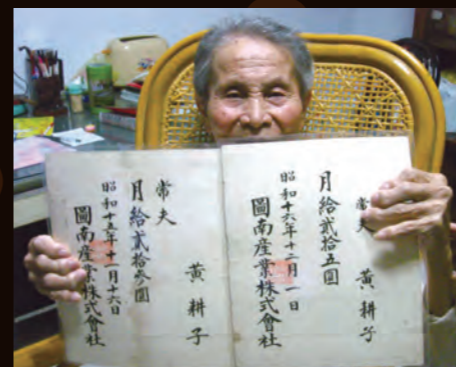 常夫 黃耕子
月給貳拾五圓
昭和十六年十二月一日
圖南産業株式會社
黃耕子
常夫
月給貳拾參圓
昭和十五年十一月十六日
圖南産業株式會社